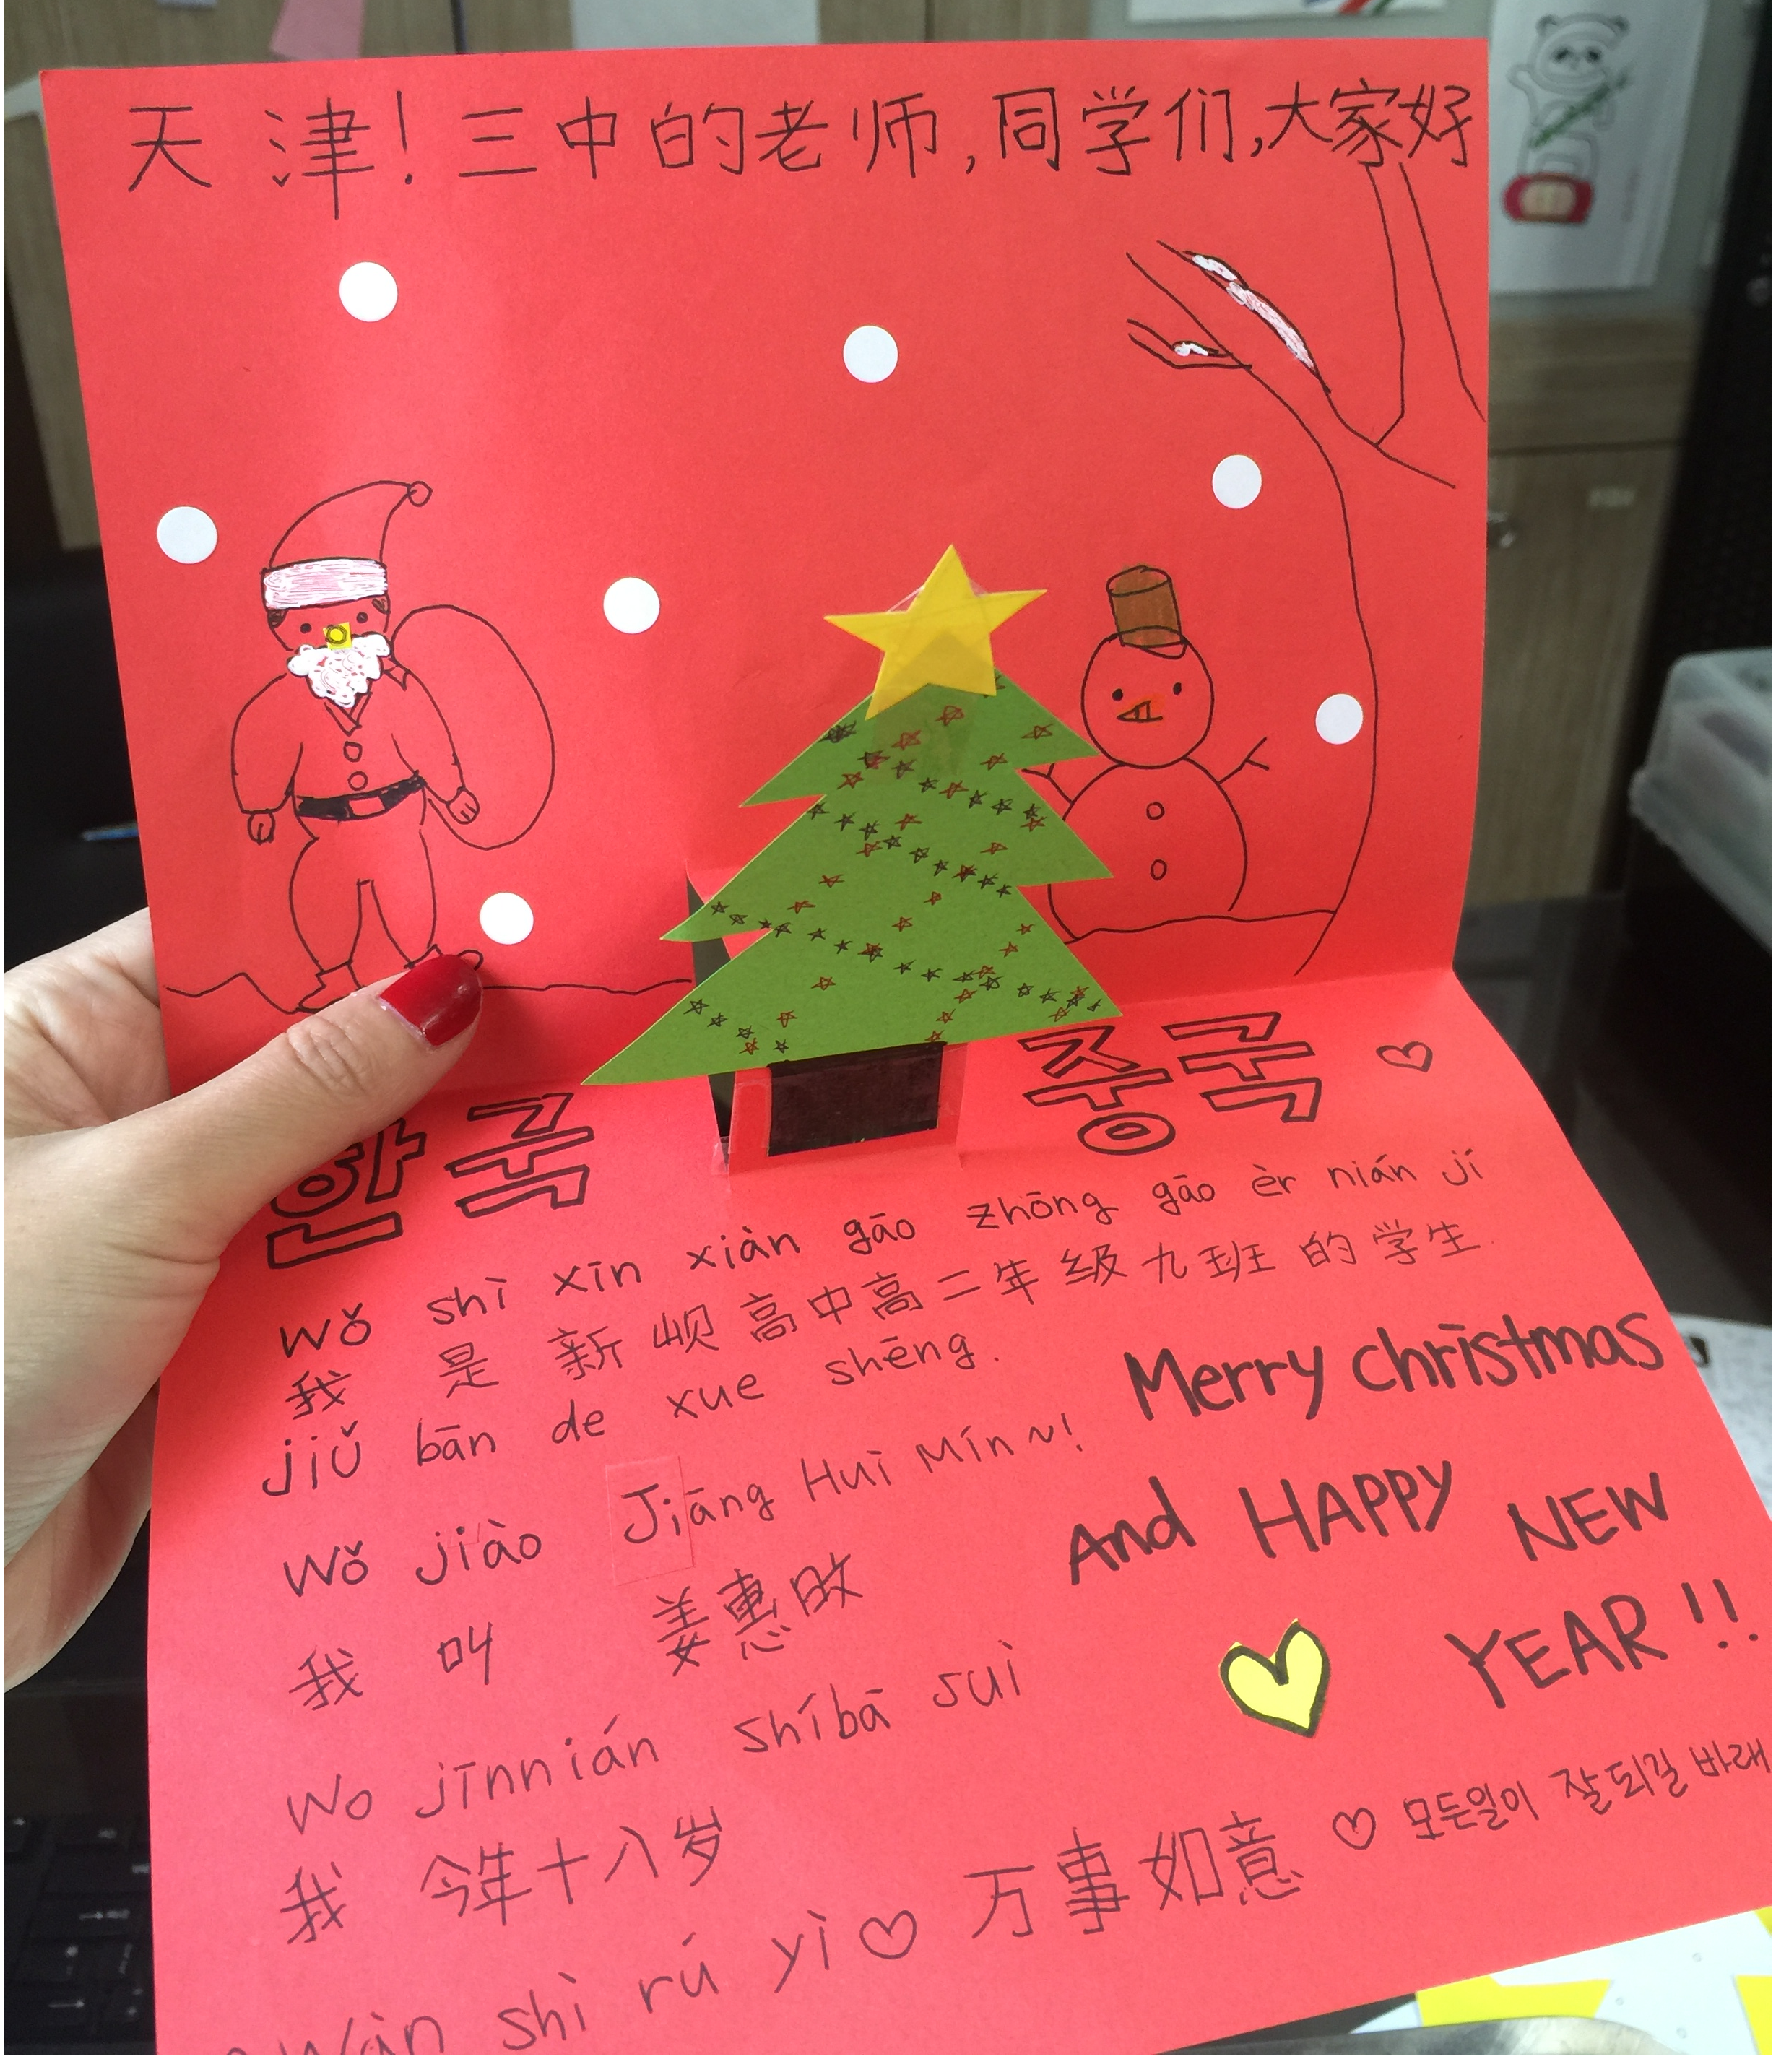 天津！三中的老师，同学们，大家好
한국 중국 ♡
wǒ shì xīn xiàn gāo zhōng gāo èr nián jí
我是新岘高中高二年级九班的学生.
jiǔ bān de xue shēng.
Wǒ jiào Jiāng Huì Mín ~!
我叫 姜惠旼
Wo jīnnián shíbā suì
我今年十八岁
Wàn shì rú yì ♡ 万事如意 ♡ 모든일이 잘되길 바래
Merry christmas
And HAPPY NEW
YEAR!!